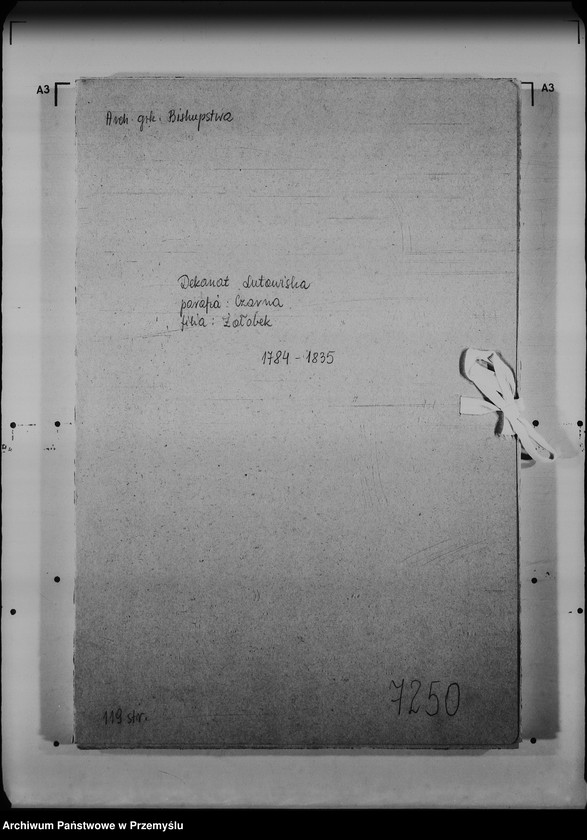 A3
A3
Arch. grk. Biskupstwa
Dekanat Lutowiska
parafia: Czarna
filia: Żołobek
1784 - 1835
7250
119 str.
Archiwum Państwowe w Przemyślu